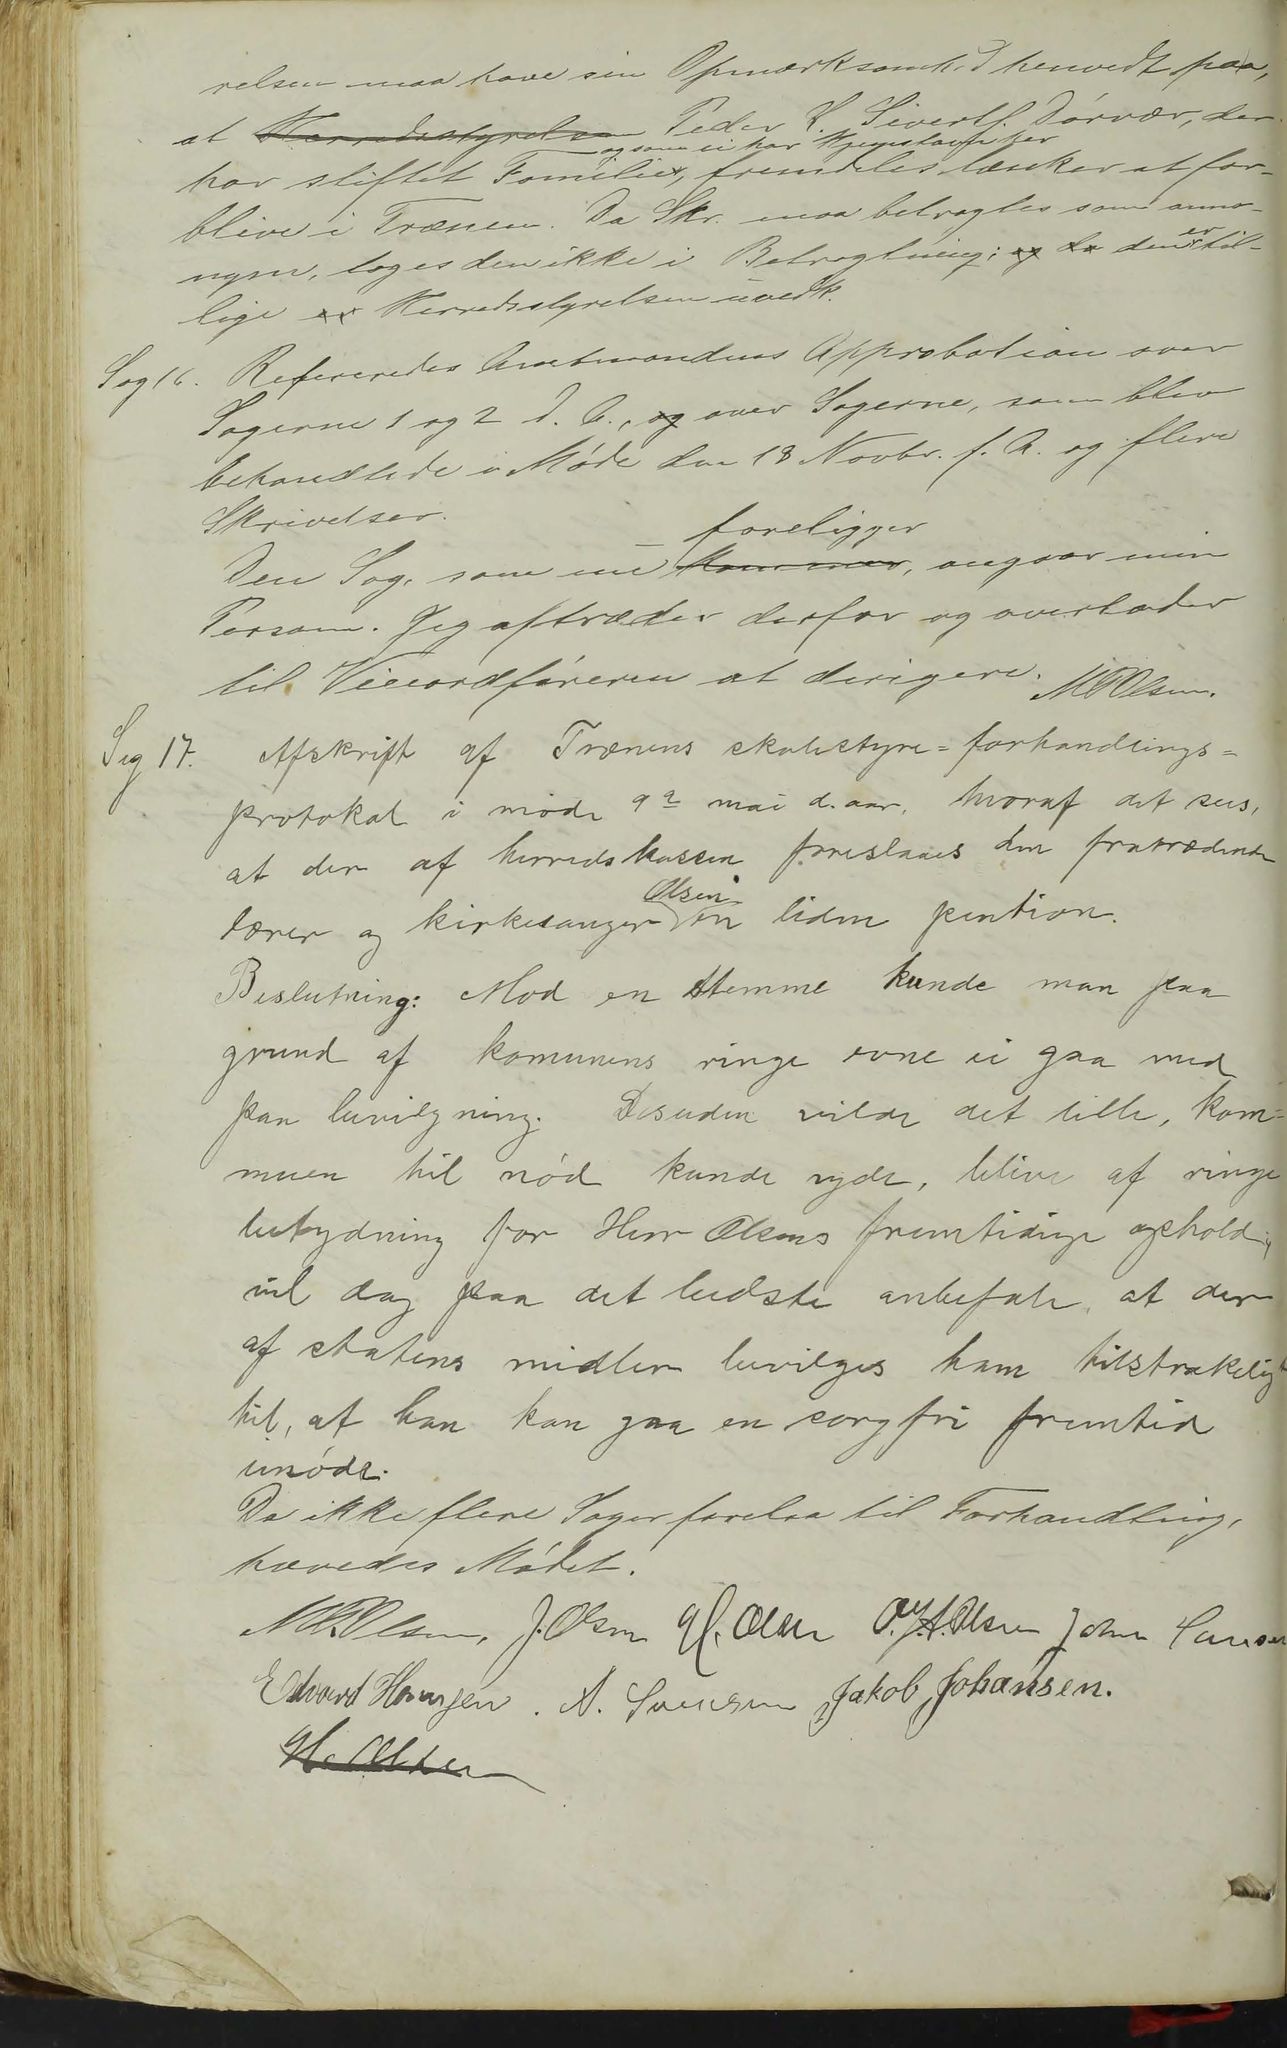 relsen maa have sin Opmærksomh.d henvedt paa,
at Herredsstyrelsen Peder L. Sivertf. Dörvær, der
og som ei har Hjemstavn her
har stiftet Familie, fremdeles tænker at for-
blive i Trænen. Da Skr. maa betragtes som anno-
nym, toges den ikke i Betragtning; og da den er til-
lige er Herredsstyrelsen uvedk.
Sag 16. Refereredes Amtmandens Approbation over
Sagerne 1 og 2 d. A., og over Sagerne, som blev
behandlede i Møde den 18 Novbr. f. A. og flere
Skrivelser.
foreligger
Den Sag, som nu kommer, angaar min
Person. Jeg aftræder derfor og overlader
til Viceordføreren at dirigere. Olsen.
Sag 17. Afskrift af Trænens skolestyre=forhandlings=
protokol i møde 9de mai d. aar, hvoraf det sees,
at der af herredskassen foreslaaes den fratrædende
Olsen
lærer og kirkesanger en liden pention.
Beslutning: Mod en stemme kunde man paa
grund af komunens ringe evne ei gaa med
paa bevilgning. Desuden vilde det lille, kom=
muen til nød kunde yde, blive af ringe
betydning for Herr Olsens fremtidige ophold,
vil dog paa det bedste anbefale, at der
af statens midler bevilges ham tilstrækelig
til, at han kan gaa en sorgfri fremtid
imøde.
Da ikke flere Sager forelaa til Forhandling,
hævedes Mødet.
Olsen, J. Olsen H. Olsen O. J. A. Olsen John
Edvard A. Jakob Johansen.
H. Olsen